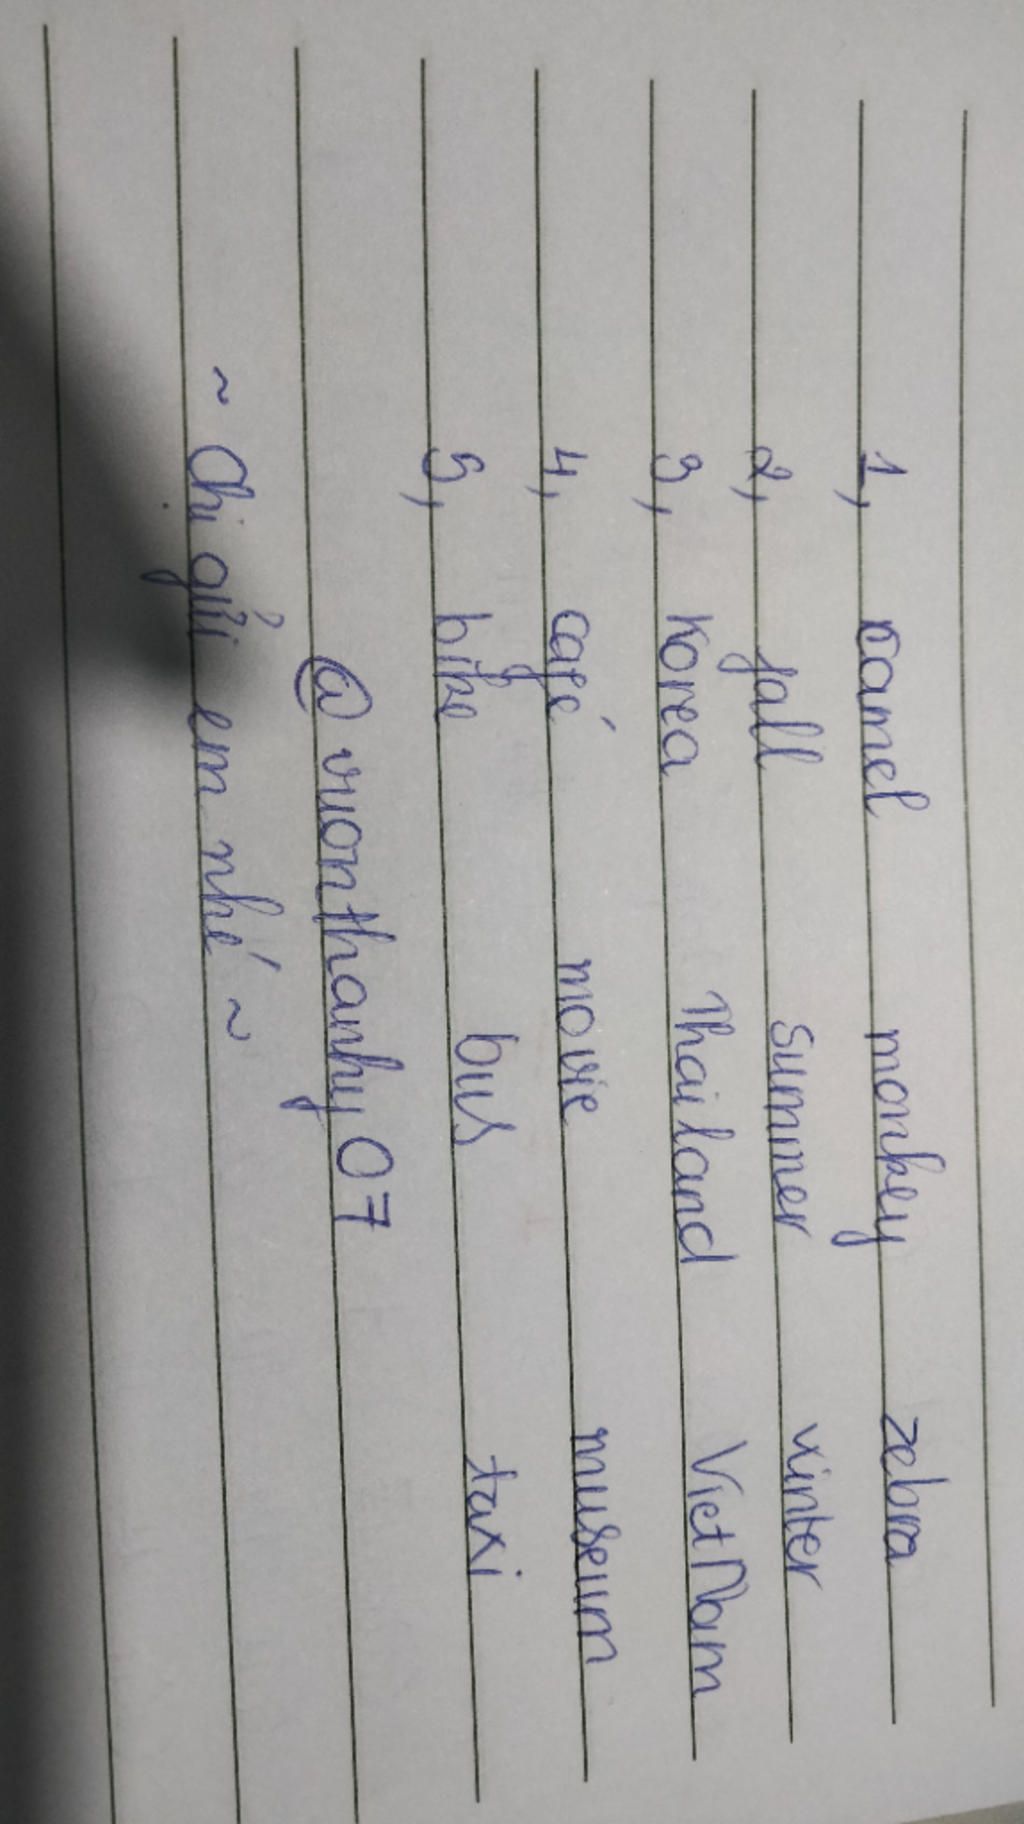 1, camel monkey zebra
2, fall summer winter
3, Korea Thailand VietNam
4, café movie museum
5, bike bus taxi
@vuonthanhy07
~ Chị gửi em nhé ~